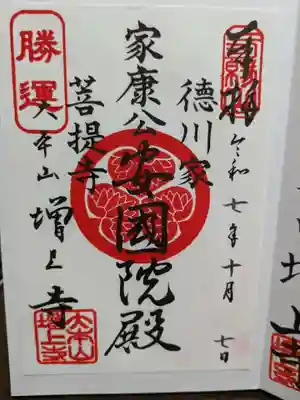 奉拝
令和七年十月七日
徳川家
家康公安國院殿
菩提寺
勝運
大本山増上寺
大本山
増上寺